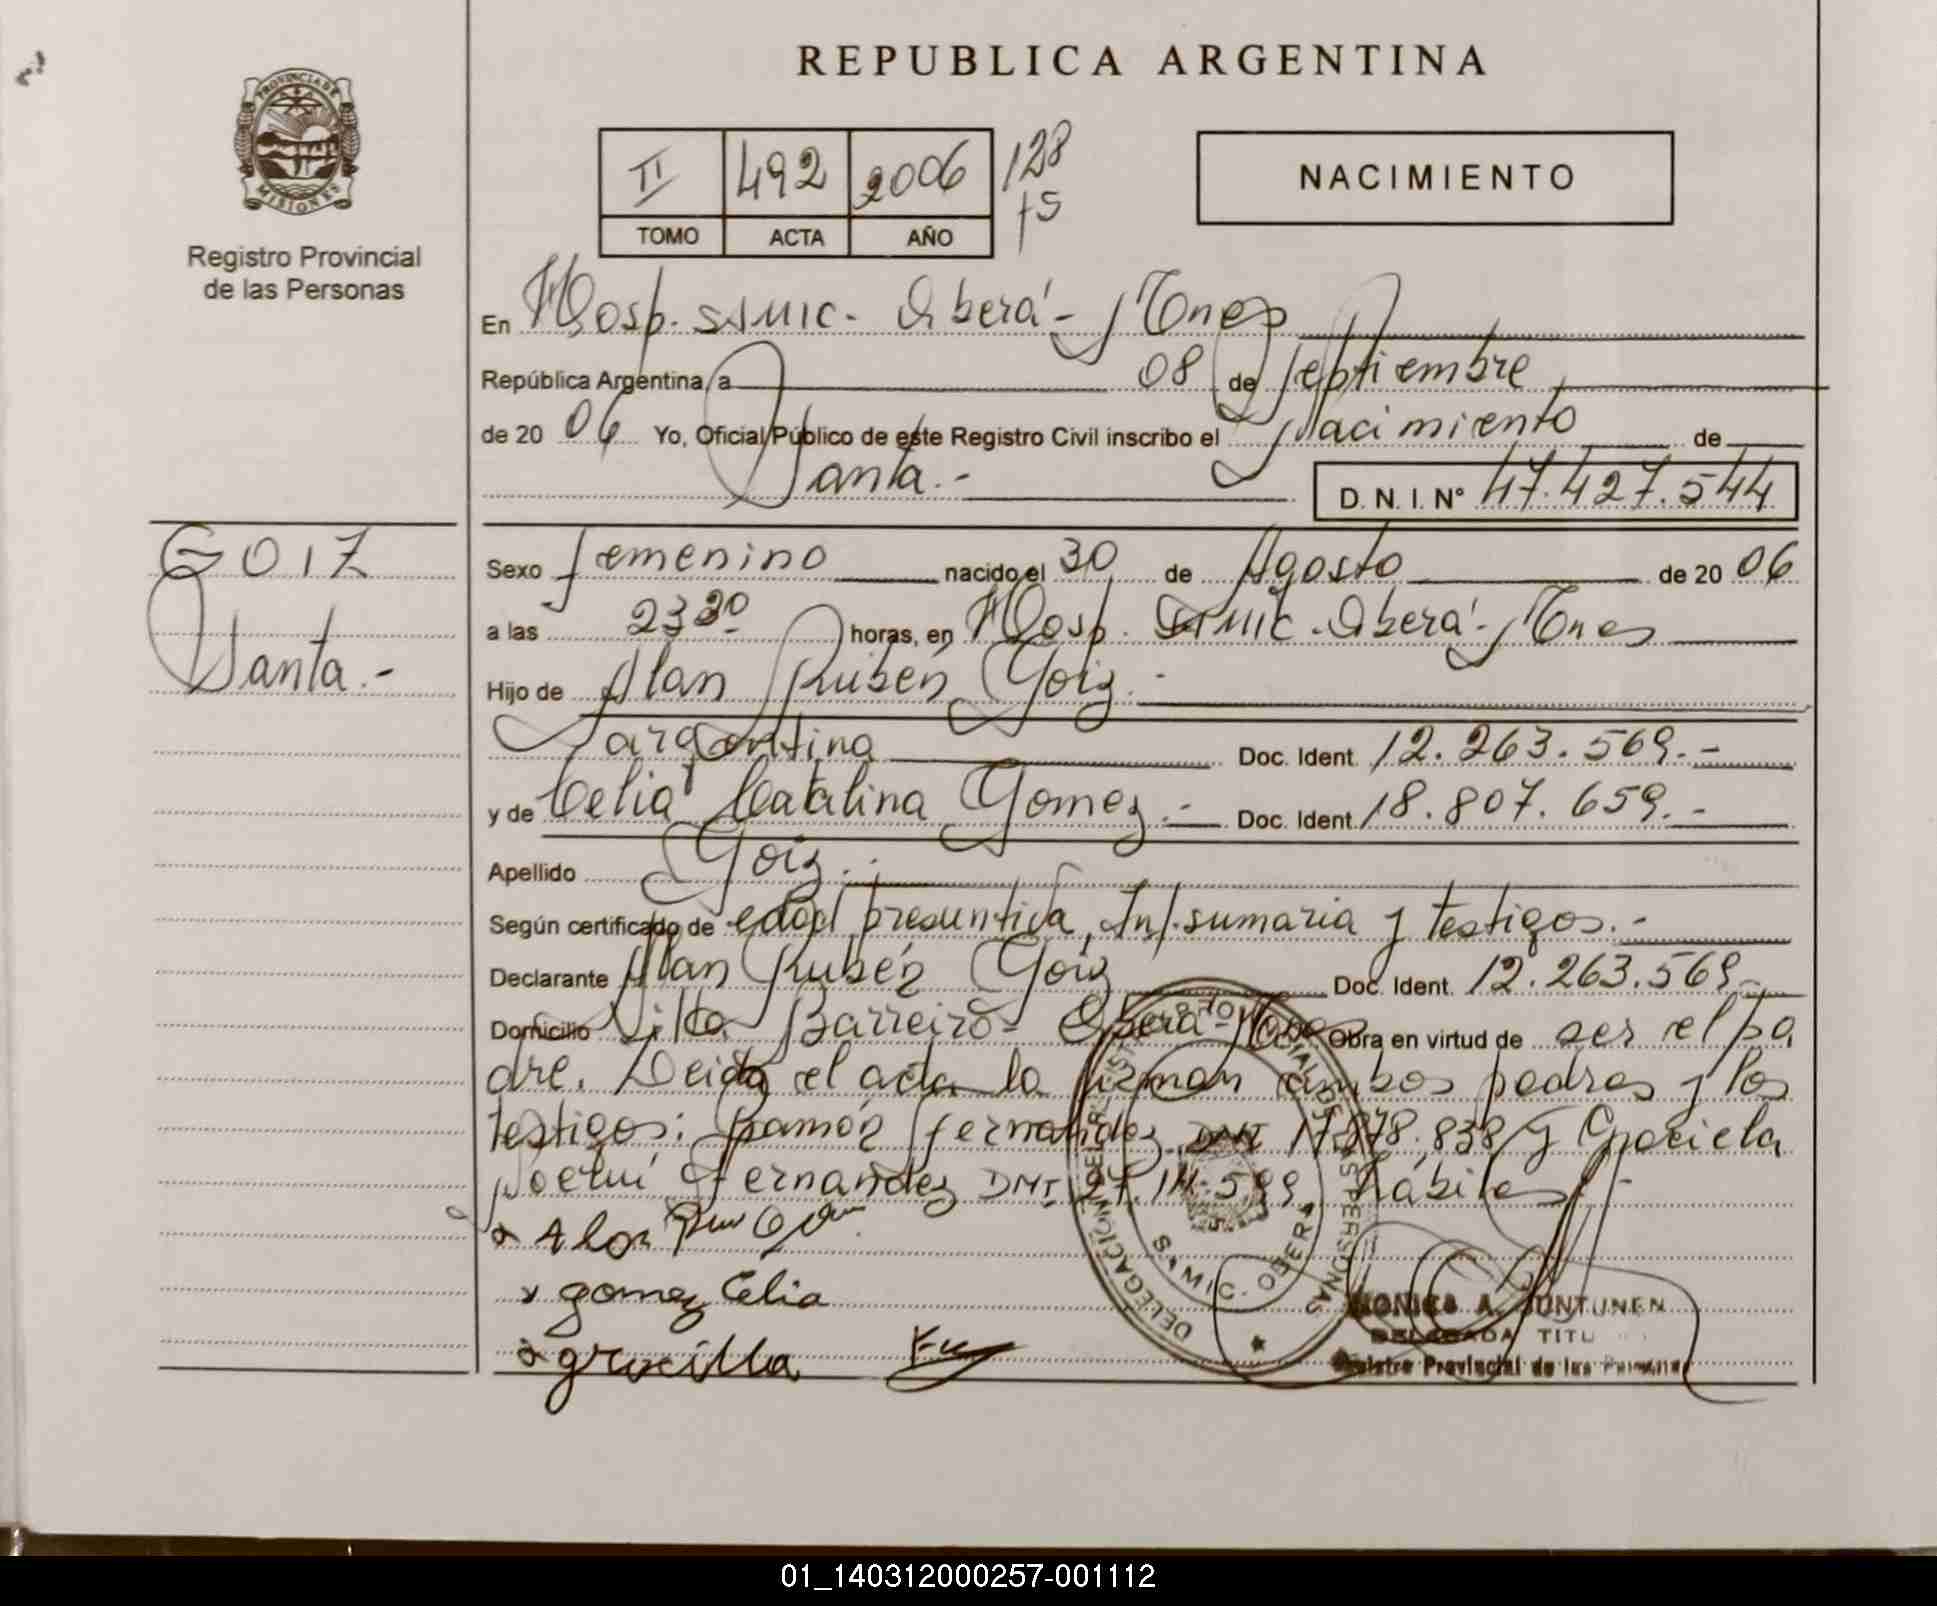 REPUBLICA ARGENTINA
PROVINCIA DE
MISIONES
Registro Provincial
de las Personas
II 492 2006 128
TOMO ACTA AÑO
NACIMIENTO
En Hosp. SAMIC - Oberá - Mnes
República Argentina, a 08 de Septiembre
de 20 06 Yo, Oficial Público de este Registro Civil inscribo el Nacimiento de
Santa.-
D. N. I. N° 47.427.544
GOIZ
Santa.-
Sexo femenino nacido el 30 de Agosto de 20 06
a las 23 30 horas, en Hosp. SAMIC - Oberá - Mnes
Hijo de Alan Rubén Goiz.-
argentina Doc. Ident. 12.263.569.-
y de Celia Catalina Gomez.- Doc. Ident. 18.807.659.-
Apellido Goiz.-
Según certificado de edad presuntiva, Inf. sumaria y testigos.-
Declarante Alan Rubén Goiz Doc. Ident. 12.263.569-
Domicilio Villa Barreiro - Oberá - Mnes Obra en virtud de ser el pa
dre. Leida el acta la firman ambos padres y los
testigos: Ramón Fernandez DNI 17.878.838 y Graciela
Noemí Fernandez DNI 27. 599 hábiles.-
x Alan
x gomez Celia
x gracilla
DELEGACION DEL REGISTRO PROVINCIAL DE LAS PERSONAS
SAMIC. OBERA
MONICA A. JUNTUNEN
DELEGADA TITU
Registro Provincial de las Personas
01_140312000257-001112